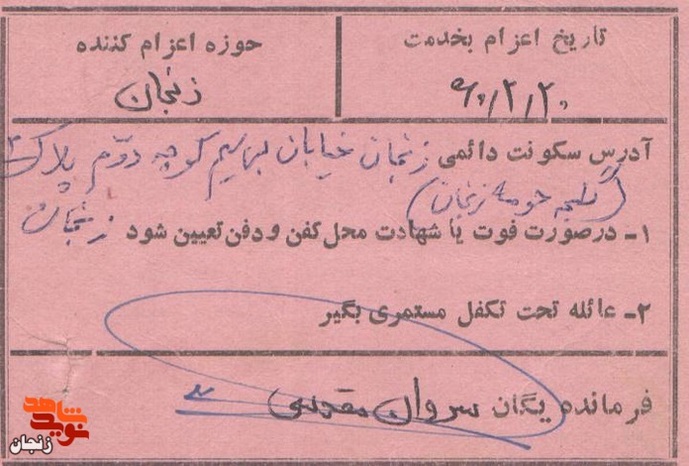 تاریخ اعزام بخدمت
حوزه اعزام کننده
۶۰/۲/۲۰
زنجان
آدرس سکونت دائمی زنجان خیابان کوچه دوّم پلاک
(گلیجه حومه زنجان)
۱- درصورت فوت یا شهادت محل کفن و دفن تعیین شود زنجان
۲- عائله تحت تکفل مستمری بگیر
فرمانده یگان سروان مقدسی
شاهد
نوید
زنجان